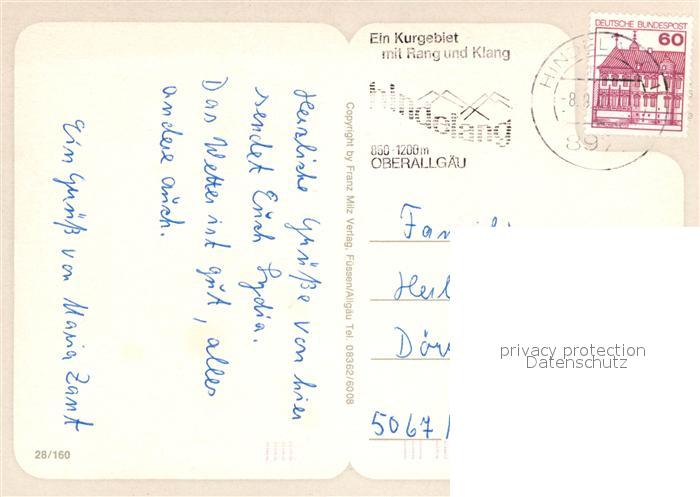 Herzliche Grüße von hier
sendet Euch Lydia.
Das Wetter ist gut, alles
andere auch.
Ein Gruß von Maria Zant
Copyright by Franz Milz Verlag, Füssen/Allgäu Tel. 08362/6008
28/160
Ein Kurgebiet
mit Rang und Klang
hindelang
850-1200m
OBERALLGÄU
DEUTSCHE BUNDESPOST
60
HINDEL
-8.9
897
5067
privacy protection
Datenschutz